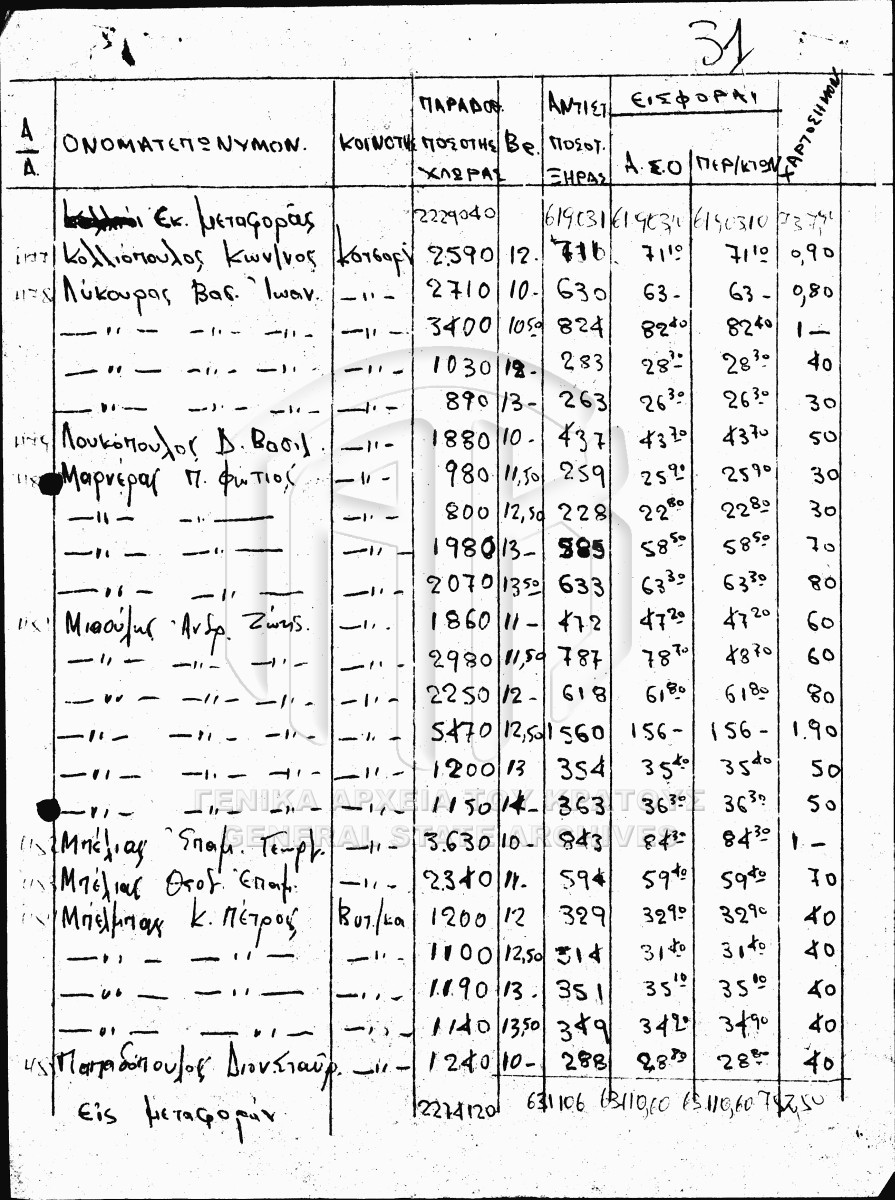 31
Α/Α. ΟΝΟΜΑΤΕΠΩΝΥΜΟΝ. ΚΟΙΝΟΤΗΣ ΠΑΡΑΔΟΘ. ΠΟΣΟΤΗΣ ΧΛΩΡΑΣ Βε. ΑΝΤΙΣΤ ΠΟΣΟΤ. ΞΗΡΑΣ ΕΙΣΦΟΡΑΙ Α.Σ.Ο ΠΕΡ/ΚΤΩΝ ΧΑΡΤΟΣΗΜΟΝ
Εκ. μεταφοράς 2229040 619031 61903,10 61903,10
1177 Κολλιόπουλος Κων/νος Κοτσαρί 2590 12. 711 71 10 71 10 0,90
1178 Λύκουρας Βασ. Ιωαν. —〃— 2710 10- 630 63- 63- 0,80
—〃— —〃— —〃— —〃— 3400 10 50 824 82 40 82 40 1—
—〃— —〃— —〃— —〃— 1030 12- 283 28 30 28 30 40
—〃— —〃— —〃— —〃— 890 13- 263 26 30 26 30 30
1179 Λουκόπουλος Δ. Βασιλ. —〃— 1880 10- 437 43 70 43 70 50
Μαρνέρας Π. Φώτιος —〃— 980 11,50 259 25 90 25 90 30
—〃— —〃— —〃— 800 12,50 228 22 80 22 80 30
—〃— —〃— —〃— 1980 13- 585 58 50 58 50 70
—〃— —〃— —〃— 2070 13 50 633 63 30 63 30 80
1181 Μισούλης Ανδρ. Ζώης. —〃— 1860 11- 472 47 20 47 20 60
—〃— —〃— —〃— —〃— 2980 11,50 787 78 70 48 70 60
—〃— —〃— —〃— —〃— 2250 12- 618 61 80 61 80 80
—〃— —〃— —〃— —〃— 5470 12,50 1560 156- 156- 1.90
—〃— —〃— —〃— —〃— 1200 13 354 35 40 35 40 50
—〃— —〃— —〃— —〃— 1150 14- 363 36 30 36 30 50
ΓΕΝΙΚΑ ΑΡΧΕΙΑ ΤΟΥ ΚΡΑΤΟΥΣ
GENERAL STATE ARCHIVES
1182 Μπέλιας Επαμ. Γεωργ. —〃— 3.630 10- 843 84 30 84 30 1—
1183 Μπέλιας Θεοδ. Επαμ. —〃— 2340 11. 594 59 40 59 40 70
Μπέλμπας Κ. Πέτρος Βυτ/κα 1200 12 329 32 90 32 90 40
—〃— —〃— —〃— 1100 12,50 314 31 40 31 40 40
—〃— —〃— —〃— 1190 13. 351 35 10 35 10 40
—〃— —〃— —〃— 1140 13,50 349 34 90 34 90 40
Παπαδόπουλος Διον. Σταύρ. —〃— 1240 10- 288 28 80 28 80 40
Εις μεταφοράν 2274120 631106 63110,60 63110,60